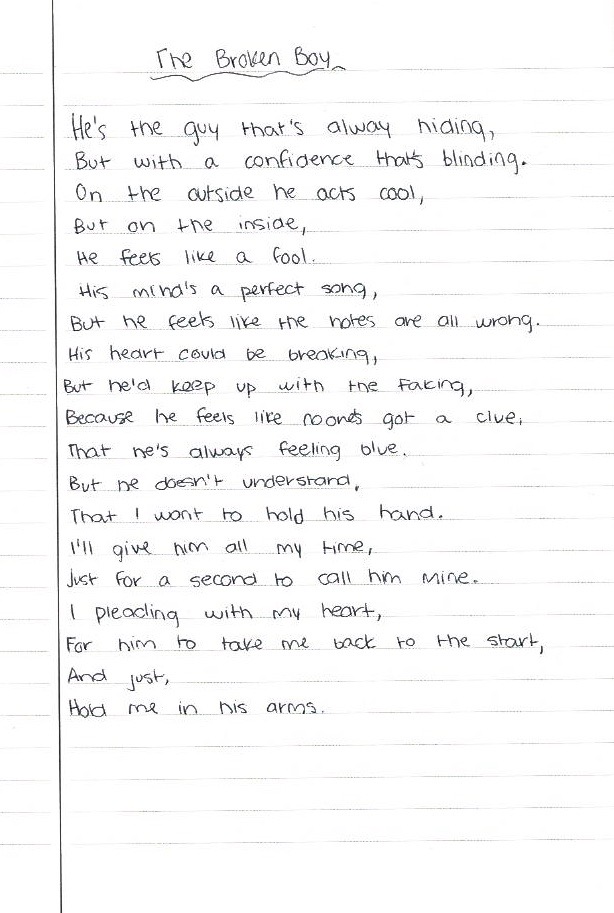 The Broken Boy
He's the guy that's alway hiding,
But with a confidence that's blinding.
On the outside he acts cool,
But on the inside,
He feels like a fool.
His mind's a perfect song,
But he feels like the notes are all wrong.
His heart could be breaking,
But he'd keep up with the faking,
Because he feels like noone's got a clue,
That he's always feeling blue.
But he doesn't understand,
That I want to hold his hand.
I'll give him all my time,
Just for a second to call him mine.
I pleading with my heart,
For him to take me back to the start,
And just,
Hold me in his arms.